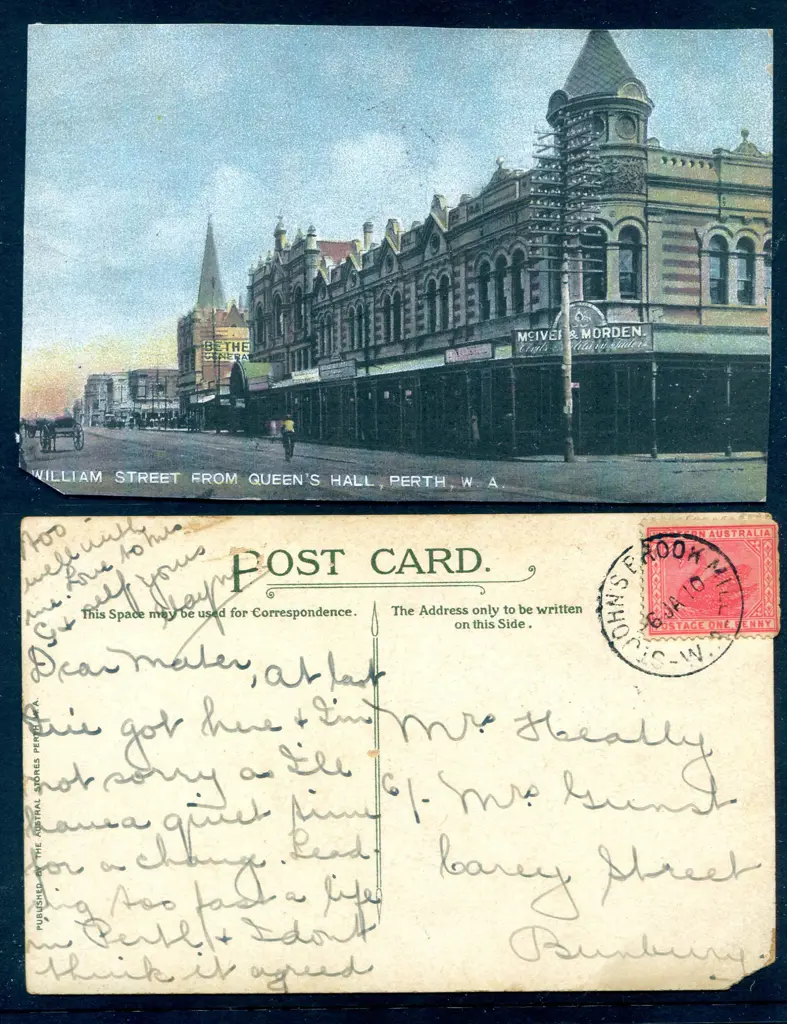 BETHE
GENERA
McIVER & MORDEN.
Civil & Military Tailors
WILLIAM STREET FROM QUEEN'S HALL, PERTH, W. A.
POST CARD.
This Space may be used for Correspondence.
The Address only to be written
on this Side.
ERN AUSTRALIA
POSTAGE ONE PENNY
ST JOHNS BROOK MILL
6 JA 10
W.A
PUBLISHED BY THE AUSTRAL STORES PERTH W.A.
Dear Mater, At last
I've got here & I'm
not sorry as I'll
have a quiet time
for a change. Lead-
ing too fast a life
in Perth & I dont
think it agreed
too
well with
me. Love to Mrs
G & self yours
Mrs Heally
c/- Mrs Gunst
Carey Street
Bunbury.